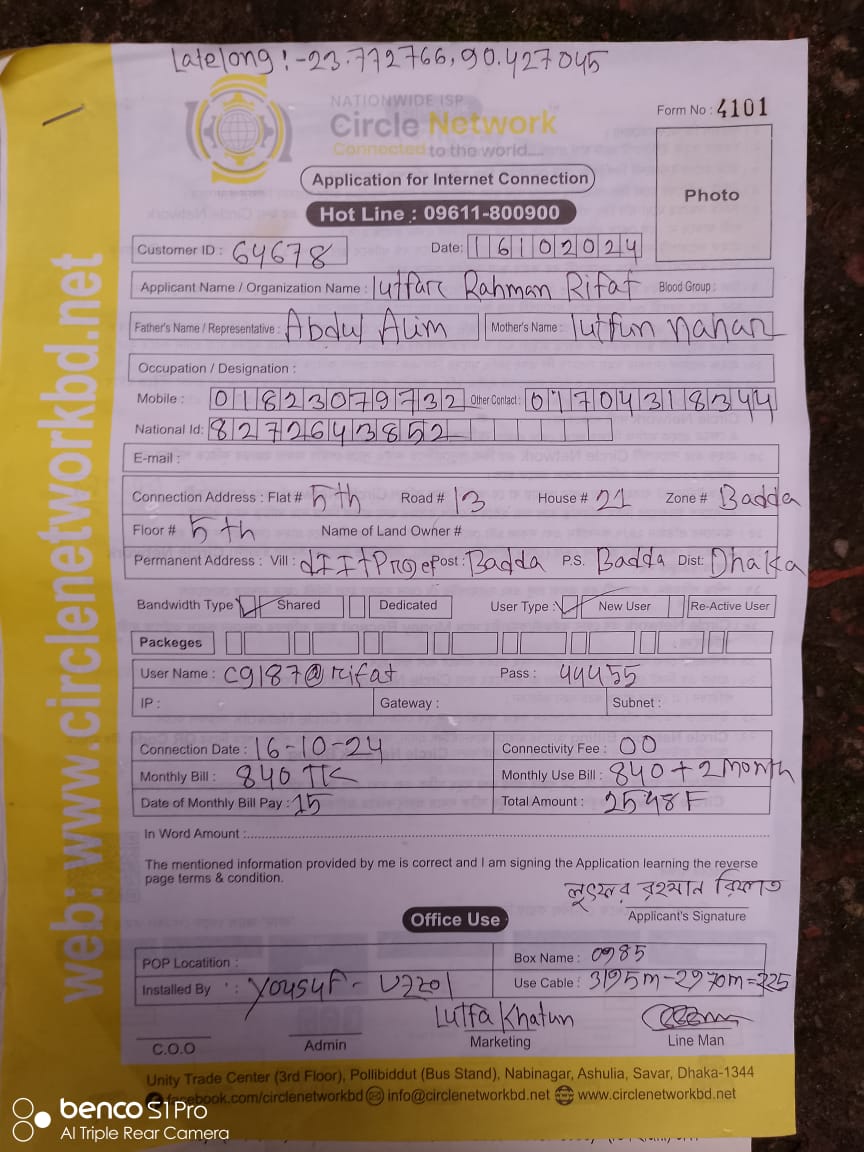 Late long :-23.772766, 90.427045
NATIONWIDE ISP
Circle Network
Connected to the world....
Form No : 4101
Photo
Application for Internet Connection
Hot Line : 09611-800900
Customer ID : 64678 Date: 16102024
Applicant Name / Organization Name : lutfar Rahman Rifat Blood Group :
Father's Name / Representative : Abdul Alim Mother's Name : lutfun nahar
Occupation / Designation :
Mobile : 01823079732 Other Contact : 01704318344
National Id: 8272643852
E-mail :
Connection Address : Flat # 5th Road # 13 House # 21 Zone # Badda
Floor # 5th Name of Land Owner #
Permanent Address : Vill : dIIt Projet Post : Badda P.S. Badda Dist: Dhaka
Bandwidth Type Shared Dedicated User Type : New User Re-Active User
Packeges
User Name : c9187@rifat Pass : 44455
IP : Gateway : Subnet :
Connection Date : 16-10-24 Connectivity Fee : 00
Monthly Bill : 840 TK Monthly Use Bill : 840 + 2 month
Date of Monthly Bill Pay : 15 Total Amount : 2548F
In Word Amount :
The mentioned information provided by me is correct and I am signing the Application learning the reverse
page terms & condition.
লুৎফর রহমান রিফাত
Applicant's Signature
Office Use
POP Locatition : Box Name : 0985
Installed By : Yousuf - Uzzol Use Cable : 3195m-2970m=225
Lutfa Khatun
C.O.O Admin Marketing Line Man
Unity Trade Center (3rd Floor), Pollibiddut (Bus Stand), Nabinagar, Ashulia, Savar, Dhaka-1344
facebook.com/circlenetworkbd info@circlenetworkbd.net www.circlenetworkbd.net
web: www.circlenetworkbd.net
benco S1Pro
AI Triple Rear Camera